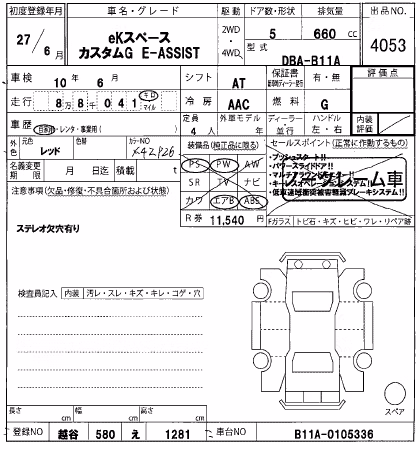 初度登録年月 車名・グレード 駆動 ドア数・形状 排気量 出品NO.
27/6月 eKスペース カスタムG E-ASSIST 2WD・4WD 5 660cc 4053
型式 DBA-B11A
車検 10年6月 シフト AT 保証書 有・無 評価点
走行 8万8千041 キロ マイル 冷房 AAC 燃料 G
車歴 自家用・レンタ・事業用( ) 定員 4人 外車モデル 年 ディーラー・並行 ハンドル 左・右 内装評価
外色 元色 レッド 色替 カラーNO X42P26
装備品(純正品に限る) セールスポイント(正常に作動するもの)
名義変更期限 月 日迄 積載 t
PS PW AW
SR TV ナビ
カワ エアB ABS
プッシュスタート!!
パワースライドドア!!
マルチアラウンドモニター!!
キーレスオペレーションシステム!!
低車速域衝突被害軽減ブレーキシステム!!
ノークレーム車
注意事項(欠品・修復・不具合箇所および状態)
R券 11,540円
Fガラス トビ石・キズ・ヒビ・ワレ・リペア跡
ステレオ欠穴有り
検査員記入 内装 汚レ・スレ・キズ・キレ・コゲ・穴
スペア
長さ cm 幅 cm 高さ cm
登録NO 越谷 580 え 1281 車台NO B11A-0105336